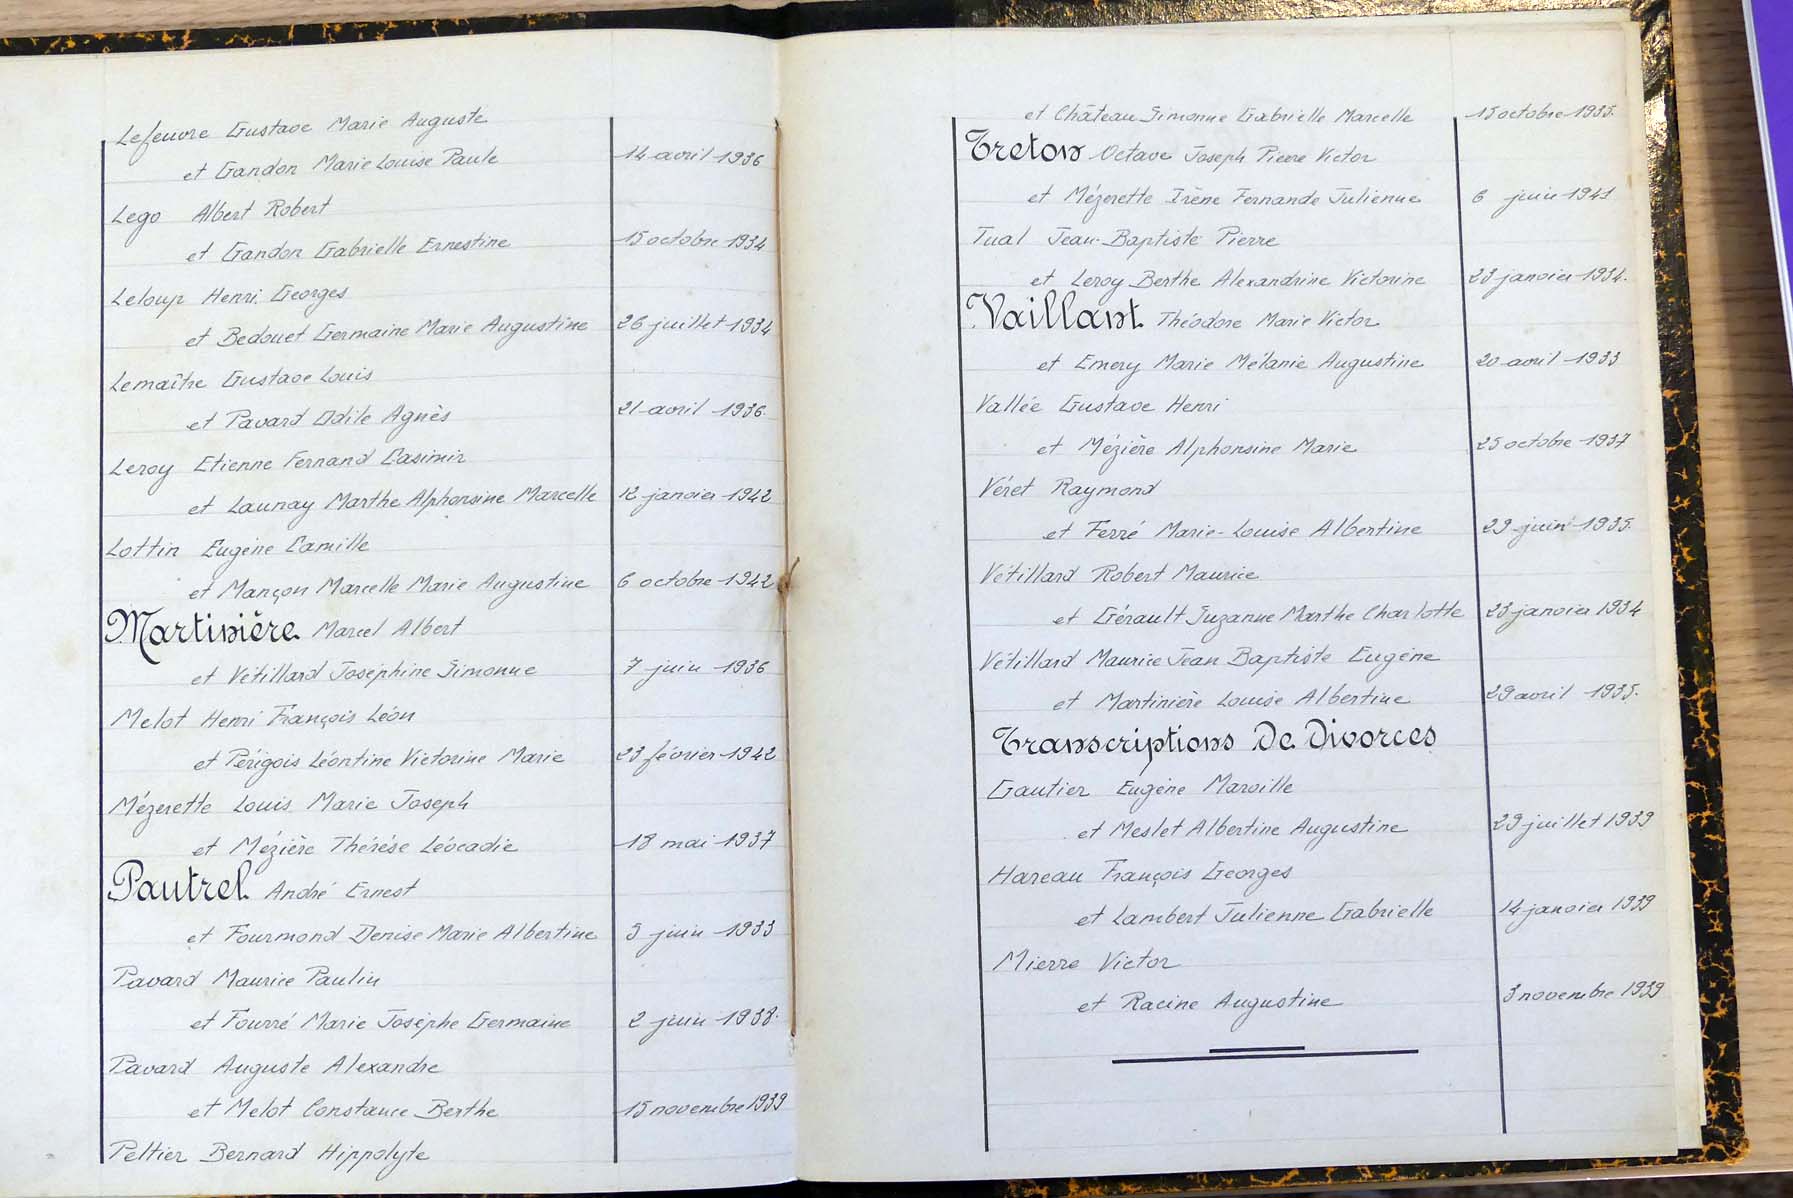 Lefeuvre Gustave Marie Auguste
et Gandon Marie Louise Paule 14 avril 1936
Lego Albert Robert
et Gandon Gabrielle Ernestine 15 octobre 1934
Leloup Henri Georges
et Bedouet Germaine Marie Augustine 26 juillet 1934
Lemaître Gustave Louis
et Pavard Odile Agnès 21 avril 1936
Leroy Etienne Fernand Casimir
et Launay Marthe Alphonsine Marcelle 12 janvier 1942
Lottin Eugène Camille
et Mançon Marcelle Marie Augustine 6 octobre 1942
Martinière Marcel Albert
et Vétillard Joséphine Simonne 7 juin 1936
Melot Henri François Léon
et Périgois Léontine Victorine Marie 23 février 1942
Mézerette Louis Marie Joseph
et Mézière Thérèse Léocadie 18 mai 1937
Pautrel André Ernest
et Fourmond Denise Marie Albertine 3 juin 1933
Pavard Maurice Paulin
et Fourré Marie Josèphe Germaine 2 juin 1938.
Pavard Auguste Alexandre
et Melot Constance Berthe 15 novembre 1939
Peltier Bernard Hippolyte
et Château Simonne Gabrielle Marcelle 15 octobre 1935.
Treton Octave Joseph Pierre Victor
et Mézerette Irène Fernande Julienne 6 juin 1941
Tual Jean-Baptiste Pierre
et Leroy Berthe Alexandrine Victorine 23 janvier 1934.
Vaillant Théodore Marie Victor
et Emery Marie Mélanie Augustine 20 avril 1933
Vallée Gustave Henri
et Mézière Alphonsine Marie 25 octobre 1937
Véret Raymond
et Ferré Marie-Louise Albertine 29 juin 1935.
Vétillard Robert Maurice
et Gérault Suzanne Marthe Charlotte 23 janvier 1934
Vétillard Maurice Jean Baptiste Eugène
et Martinière Louise Albertine 29 avril 1935.
Transcriptions De Divorces
Gautier Eugène Marville
et Meslet Albertine Augustine 29 juillet 1939
Hareau François Georges
et Lambert Julienne Gabrielle 14 janvier 1939
Mierre Victor
et Racine Augustine 3 novembre 1939